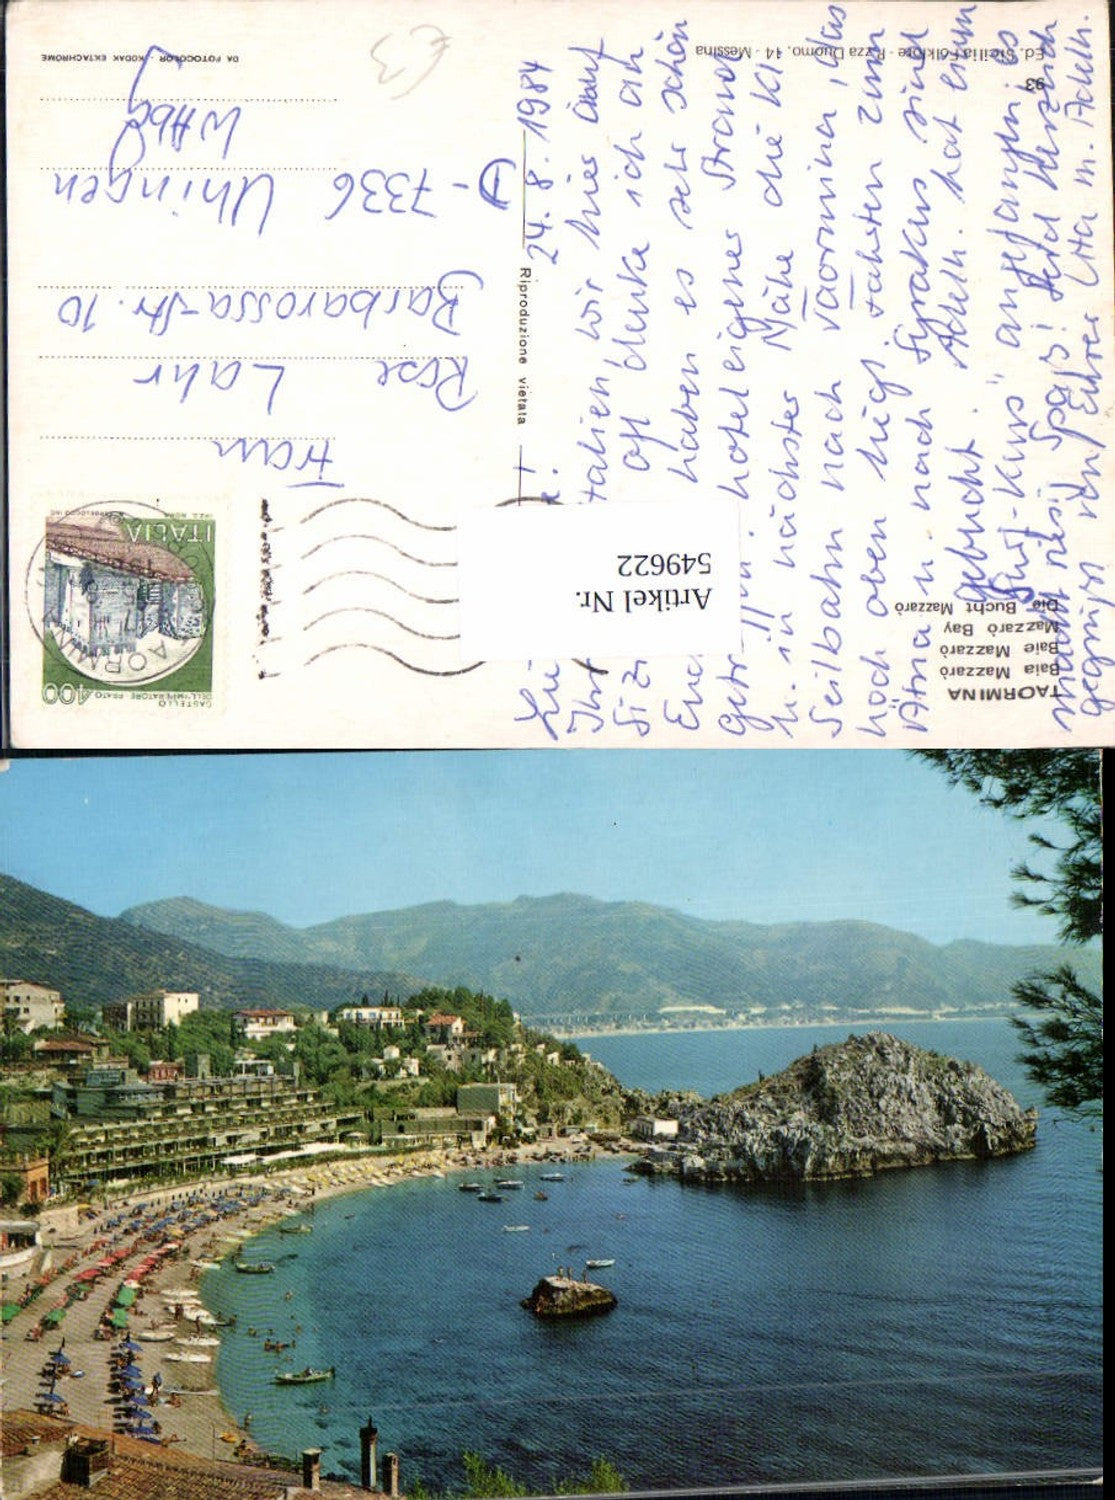 TAORMINA
Baia Mazzarò
Baie Mazzarò
Mazzarò Bay
Die Bucht Mazzarò
24.8.1984
wir hier auf
oft denke ich an
haben es sehr schön
hoteleigener Strand
u. in nächster Nähe die Kl.
Seilbahn nach Taormina, das
hoch oben liegt. Fahrten zum
Ätna u. nach Syrakus sind
gebucht. Adelh. hat einen
"Surf-Kurs" angefangen, es
macht riesig Spaß! Seid herzlich
gegrüßt von Eurer Uta m. Adelh.
93
Ed. Sicilia Folklore - P.zza Duomo, 44 - Messina
Riproduzione vietata
DA FOTOCOLOR - KODAK EKTACHROME
Artikel Nr.
549622
CASTELLO
DELL'IMPERATORE PRATO
400
ITALIA
TAORMINA
Frau
Rose Lahr
Barbarossa-Str. 10
D-7336 Uhingen
Wttbg
€3